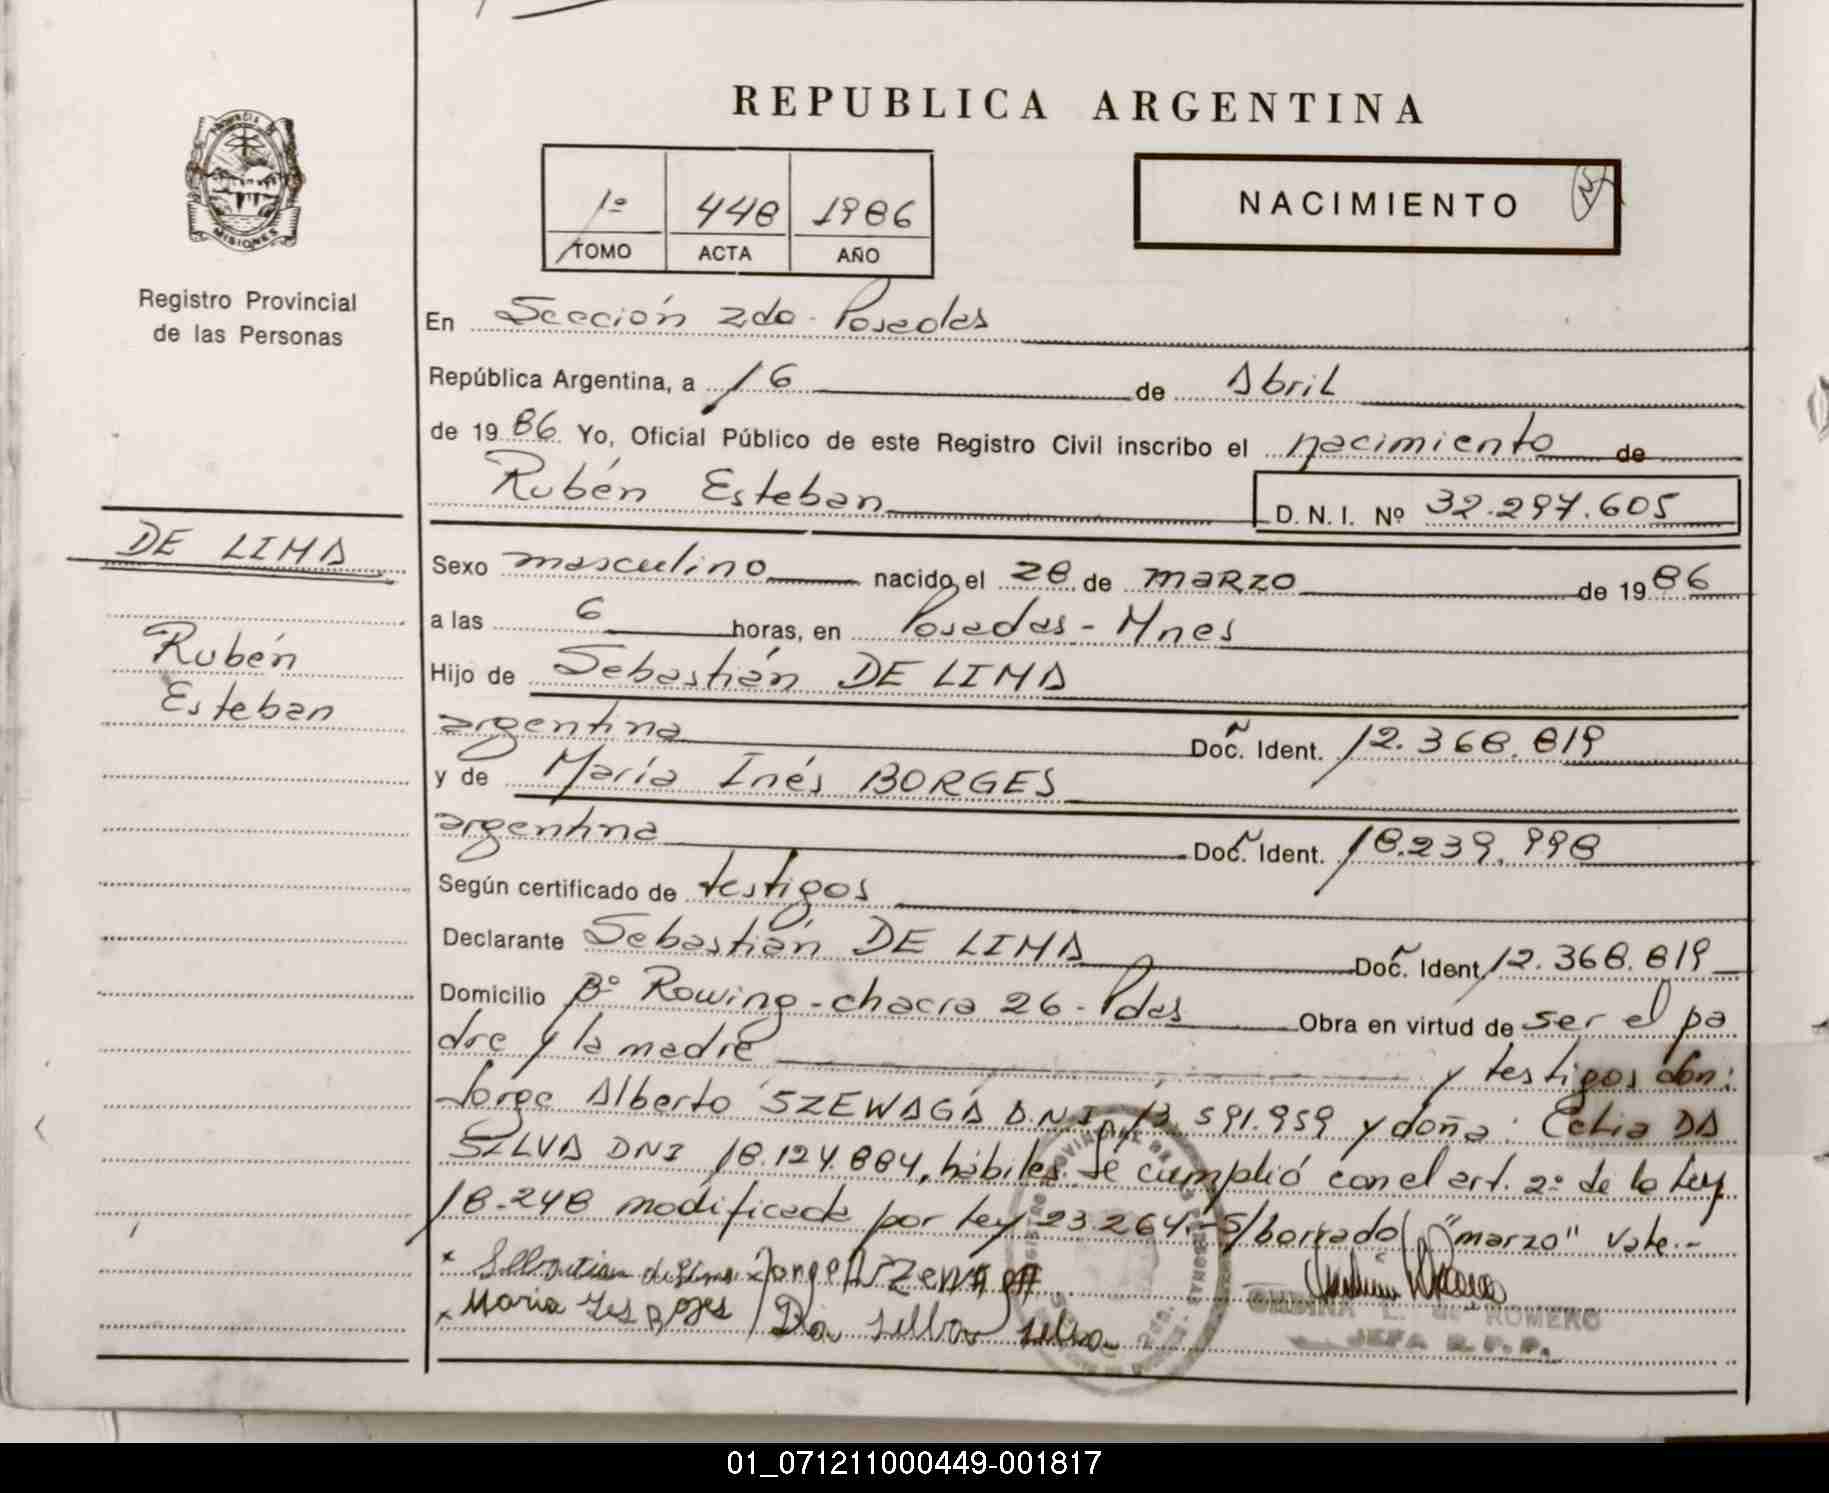 REPUBLICA ARGENTINA
PROVINCIA DE
MISIONES
Registro Provincial
de las Personas
1º 448 1986
TOMO ACTA AÑO
NACIMIENTO
En Sección 2da - Posadas
República Argentina, a 16 de Abril
de 1986 Yo, Oficial Público de este Registro Civil inscribo el nacimiento de
Rubén Esteban D. N. I. Nº 32.297.605
DE LIMA
Rubén
Esteban
Sexo masculino nacido el 28 de marzo de 1986
a las 6 horas, en Posadas - Mnes
Hijo de Sebastián DE LIMA
argentina Doc. Ident. 12.368.819
y de María Inés BORGES
argentina Doc. Ident. 18.239.998
Según certificado de testigos
Declarante Sebastián DE LIMA Doc. Ident. 12.368.819
Domicilio Bº Rowing - chacra 26 - Pdas Obra en virtud de ser el pa
dre y la madre y testigos don:
Jorge Alberto SZEWAGA D.N.I. 13.591.959 y doña: Celia DA
SILVA DNI 18.124.884, hábiles. Se cumplió con el art. 2º de la Ley
18.248 modificada por Ley 23.264.- S/borrado "marzo" Vale.-
Jorge
Maria
Da
L. de ROMERO
JEFA R.P.P.
01_071211000449-001817